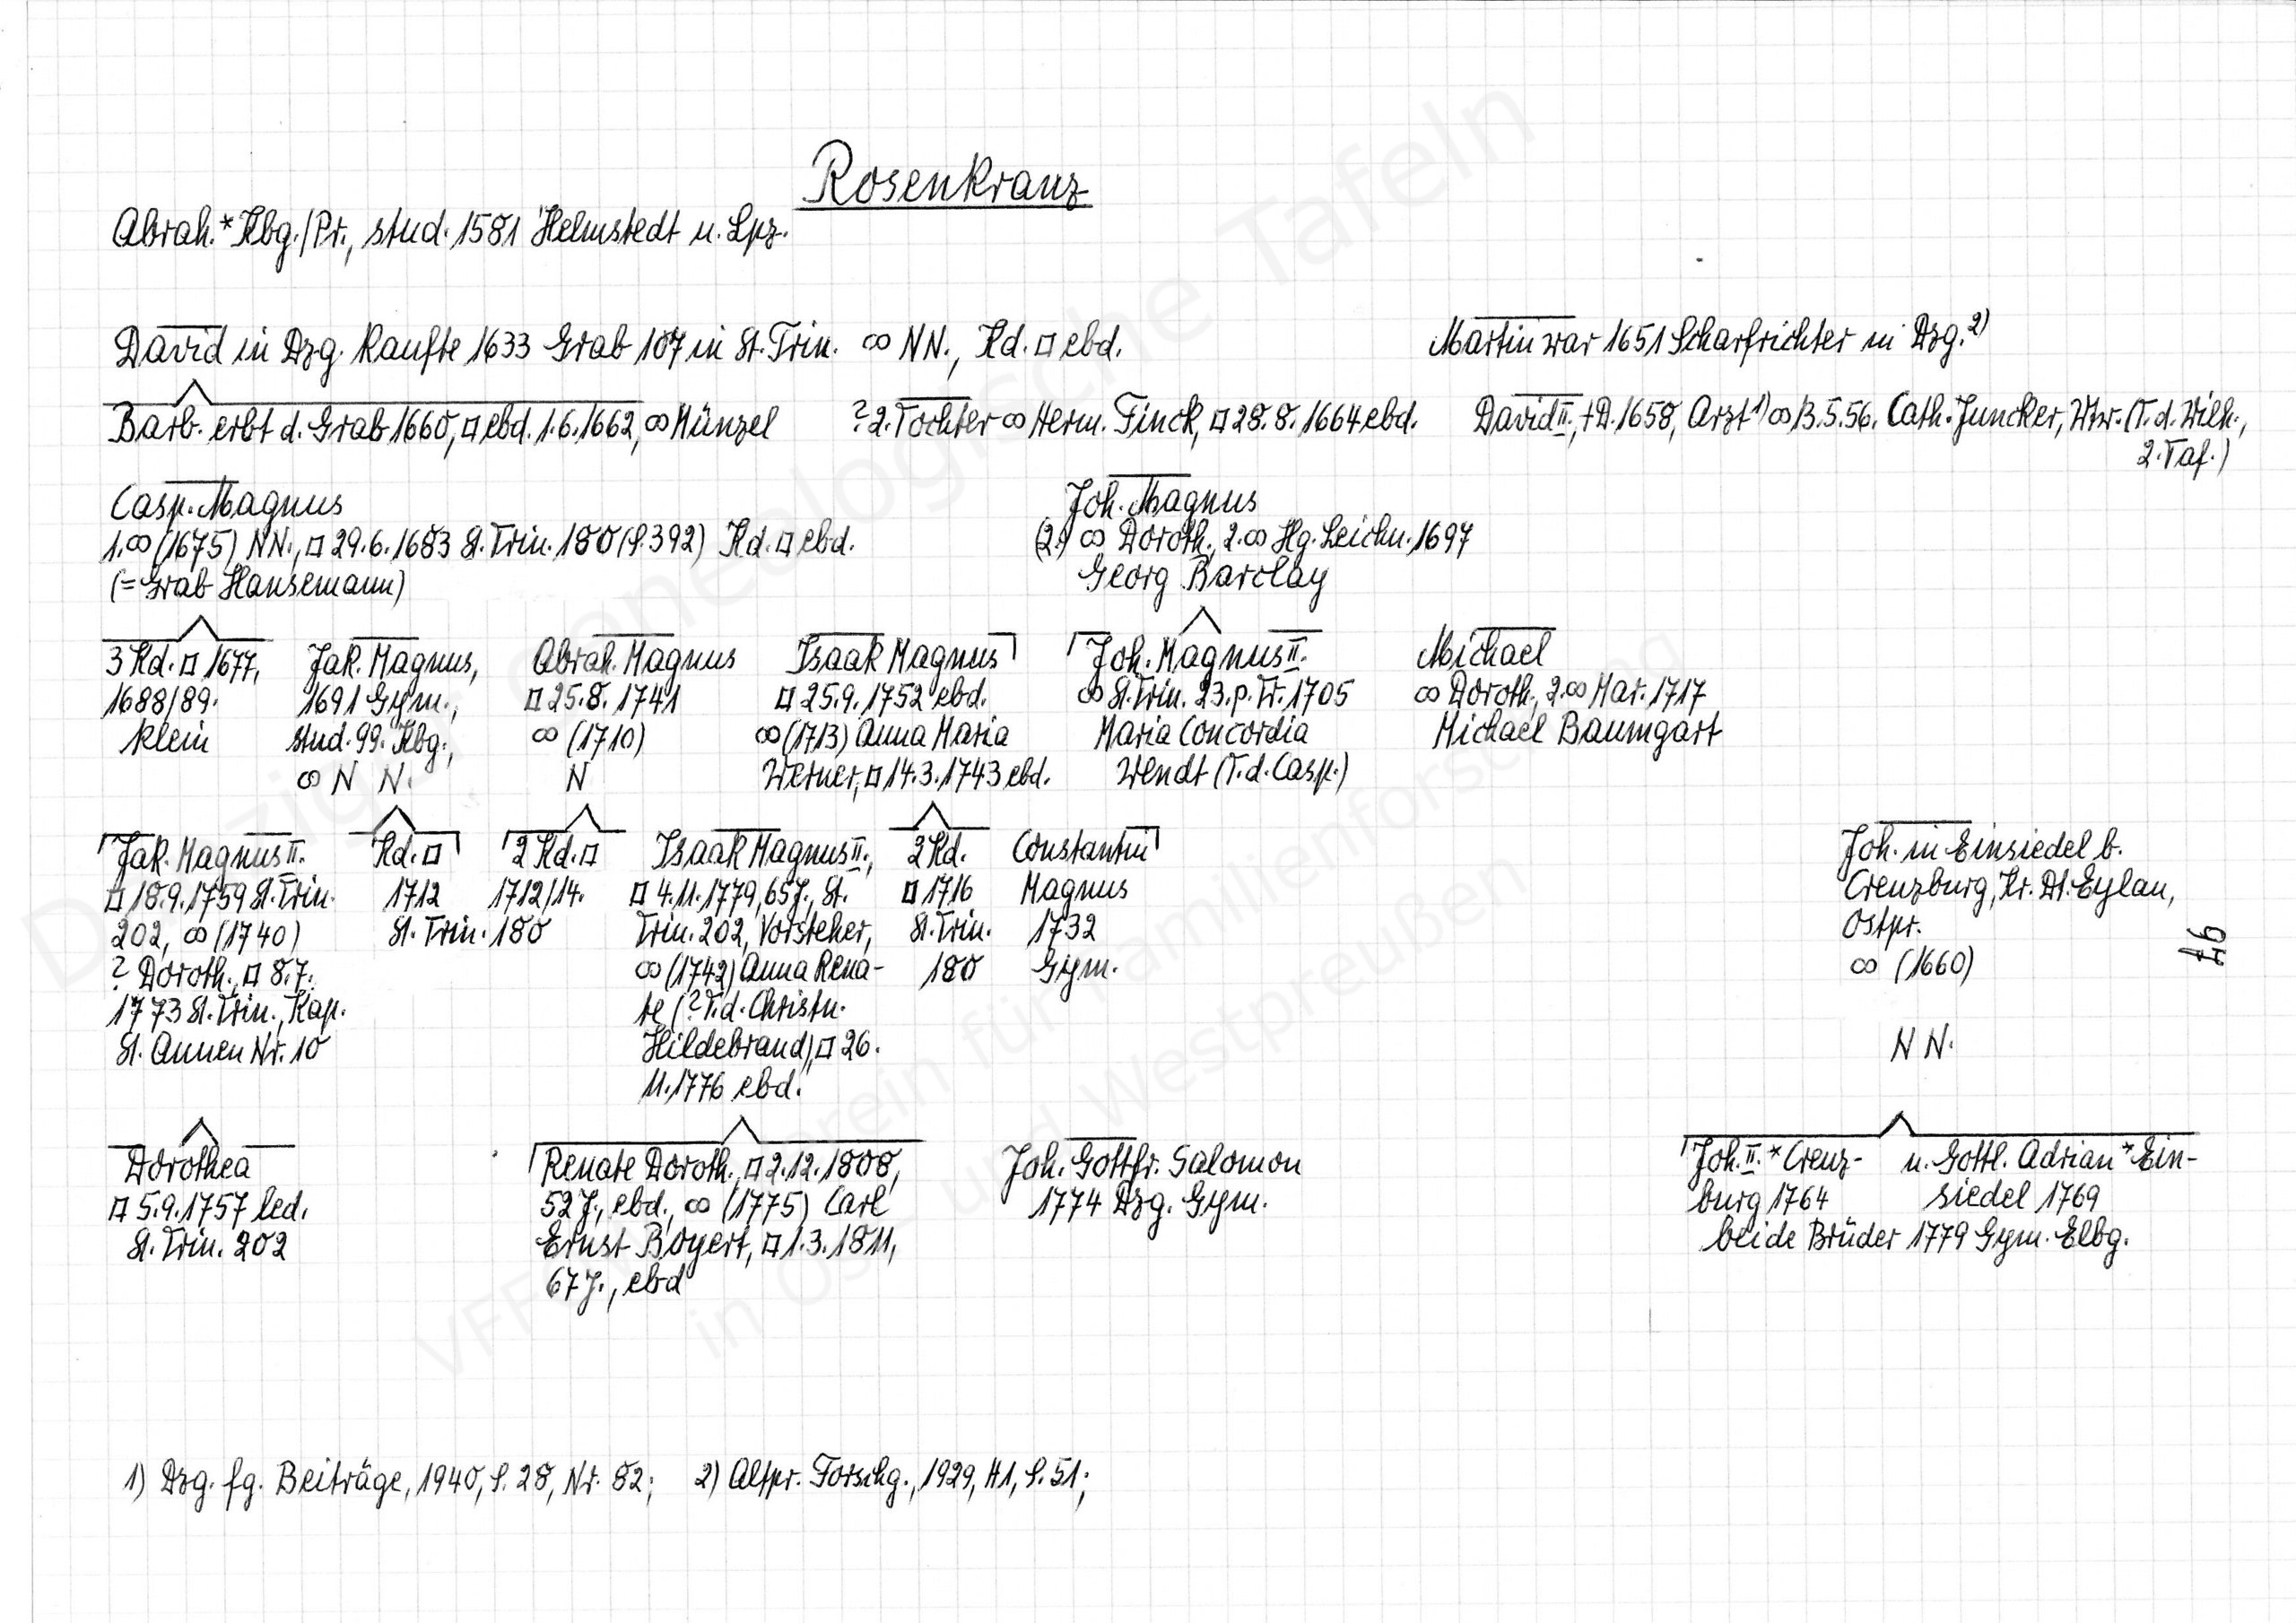 Rosenkranz
Abrah. * Kbg./Pr., stud. 1581 Helmstedt u. Lpz.
David in Dzg. kaufte 1633 Grab 107 in St. Trin. ∞ NN., Kd. □ ebd.
Martin war 1651 Scharfrichter in Dzg. 2)
Barb. erbt d. Grab 1660, □ ebd. 1.6.1662, ∞ Münzel
? 2. Tochter ∞ Herm. Finck, □ 28.8.1664 ebd.
David II., † D. 1658, Arzt 1) ∞ 13.5.56. Cath. Juncker, Wtw. (T. d. Wilh.,
2. Taf.)
Casp. Magnus
1. ∞ (1675) NN., □ 29.6.1683 St. Trin. 180 (S. 392) Kd. □ ebd.
(= Grab Hansemann)
Joh. Magnus
(2.) ∞ Doroth., 2. ∞ Hg. Leichn. 1697
Georg Barclay
3 Kd. □ 1677,
1688/89.
klein
Jak. Magnus,
1691 Gym.,
stud. 99. Kbg.,
∞ N N.
Abrah. Magnus
□ 25.8.1741
∞ (1710)
N
Isaak Magnus
□ 25.9.1752 ebd.
∞ (1713) Anna Maria
Werner, □ 14.3.1743 ebd.
Joh. Magnus II.
∞ St. Trin. 23. p. Tr. 1705
Maria Concordia
Wendt (T. d. Casp.)
Michael
∞ Doroth., 2. ∞ Mar. 1717
Michael Baumgart
Jak. Magnus II.
□ 18.9.1759 St. Trin.
202, ∞ (1740)
? Doroth., □ 8.7.
1773 St. Trin., Kap.
St. Annen Nr. 10
Kd. □
1712
St. Trin. 180
2 Kd. □
1712/14.
Isaak Magnus II.,
□ 4.11.1779, 65 J., St.
Trin. 202, Vorsteher,
∞ (1742) Anna Rena-
te (? T. d. Christn.
Hildebrand), □ 26.
11.1776 ebd.
2 Kd.
□ 1716
St. Trin.
180
Constantin
Magnus
1732
Gym.
Joh. in Einsiedel b.
Creuzburg, Kr. Dt. Eylau,
Ostpr.
∞ (1660)
N N.
Dorothea
□ 5.9.1757 led.
St. Trin. 202
Renate Doroth., □ 2.12.1808,
52 J., ebd., ∞ (1775) Carl
Ernst Boyert, □ 1.3.1811,
67 J., ebd
Joh. Gottfr. Salomon
1774 Dzg. Gym.
Joh. II. * Creuz-
burg 1764
u. Gottl. Adrian * Ein-
siedel 1769
beide Brüder 1779 Gym. Elbg.
1) Dzg. fg. Beiträge, 1940, S. 28, Nr. 82; 2) Altpr. Forschg., 1929, H1, S. 51;
Danziger Genealogische Tafeln
VFFOW Verein für Familienforschung
in Ost- und Westpreußen